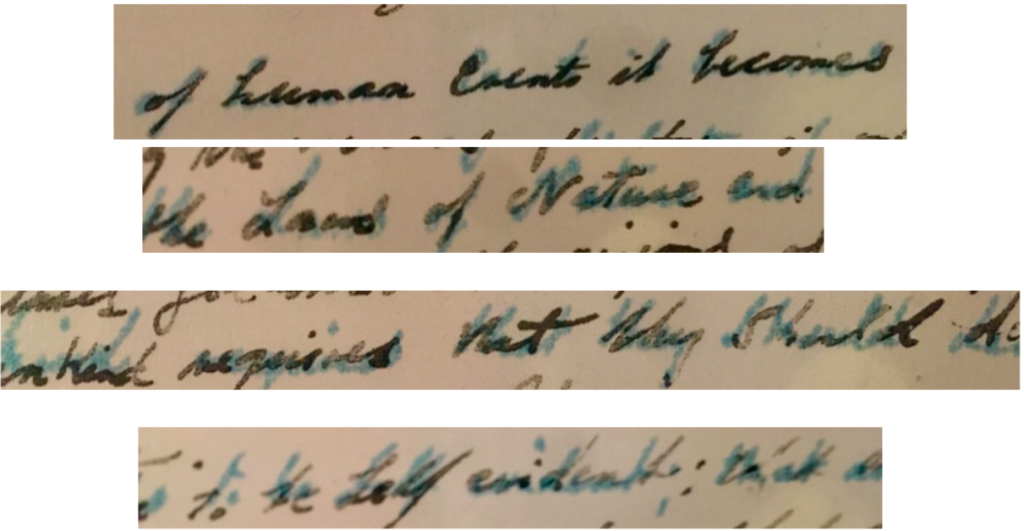 of human Events it becomes
the Laws of Nature and
requires that they Should
to be Self evident; that